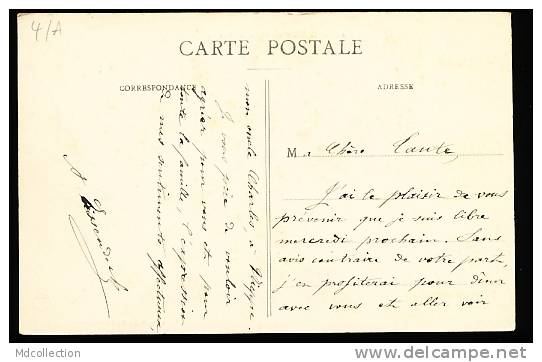 4/A
CARTE POSTALE
CORRESPONDANCE
ADRESSE
Ma Chère Tante,
J'ai le plaisir de vous
prévenir que je suis libre
mercredi prochain. Sans
avis contraire de votre part,
j'en profiterai pour dîner
avec vous et aller voir
mon oncle Charles, à Dieppe.
Je vous prie de vouloir
agréer pour vous et pour
toute la famille, l'expression
de mes sentiments affectueux,
Mdcollection
www.delcampe.net